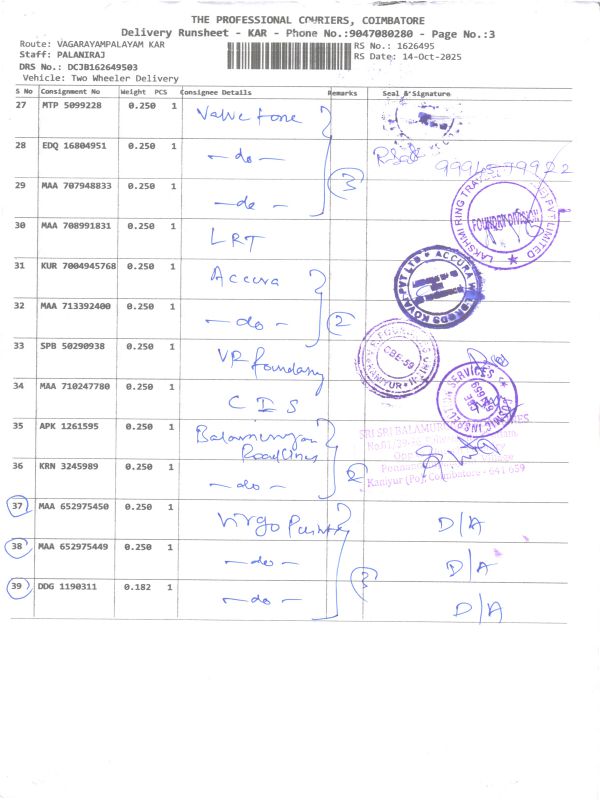 THE PROFESSIONAL COURIERS, COIMBATORE
Delivery Runsheet - KAR - Phone No.:9047080280 - Page No.:3
Route: VAGARAYAMPALAYAM KAR
Staff: PALANIRAJ
DRS No.: DCJB162649503
Vehicle: Two Wheeler Delivery
RS No.: 1626495
RS Date: 14-Oct-2025
S No Consignment No Weight PCS Consignee Details Remarks Seal & Signature
27 MTP 5099228 0.250 1 Valve tone
28 EDQ 16804951 0.250 1 - do -
29 MAA 707948833 0.250 1 - do - 3
30 MAA 708991831 0.250 1 LRT
LAKSHMI RING TRA PVT LIMITED
FOUNDRY DIVISION
31 KUR 7004945768 0.250 1 Accura
32 MAA 713392400 0.250 1 - do - 2
ACCURA KOVAI PVT LTD
33 SPB 50290938 0.250 1 VR foundary
CBE-59
KANIYUR
34 MAA 710247780 0.250 1 CIS
COSMIC INSPECTION SERVICES
35 APK 1261595 0.250 1 Balamurugan Roadlines
36 KRN 3245989 0.250 1 - do - 2
SRI SRI BALAMURU
Kaniyur (Po), Coimbatore - 641 659
37 MAA 652975450 0.250 1 Virgo Paints D/A
38 MAA 652975449 0.250 1 - do - D/A
39 DDG 1190311 0.182 1 - do - 3 D/A